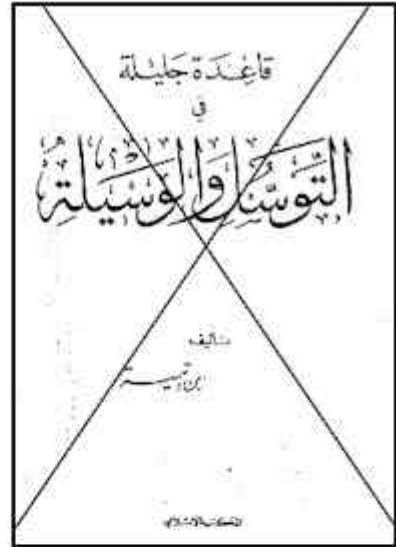 قاعدة جليلة
في
التوسل والوسيلة
تأليف
ابن تيمية
المكتب الإسلامي